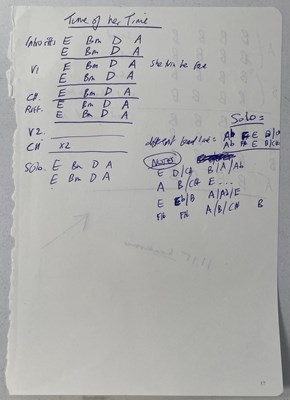 Time of her Time
Intro Riff: E Bm D A
E Bm D A
V1 E Bm D A
E Bm D A
CH. E Bm D A
Riff. E Bm D A
E Bm D A
V2.
CH X2
Solo. E Bm D A
E Bm D A
Solo =
different bass line = Ab
Notes
E D/C# B/A/Ab
A B/C# E ...
E Eb/B A/Ab/E
F# F# A/B/C# B